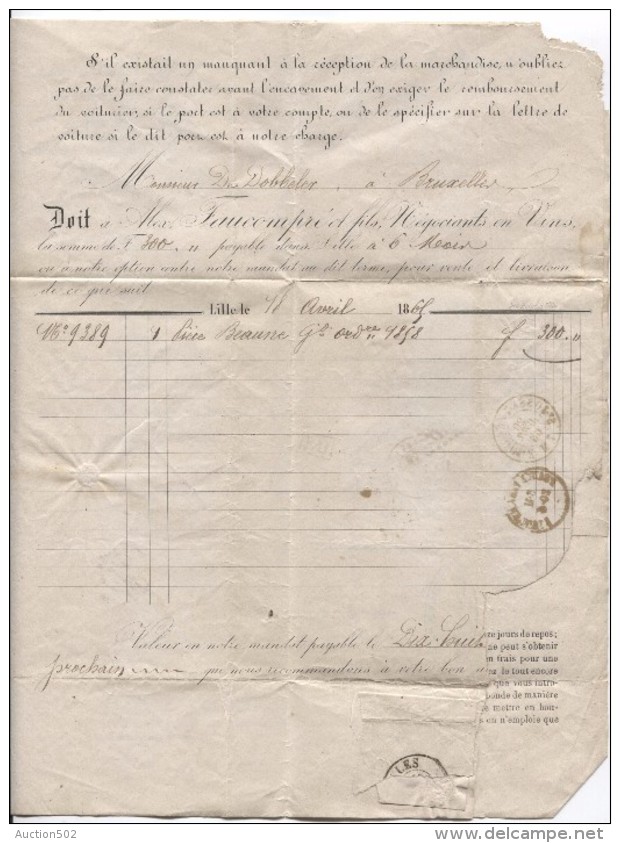 S'il existait un manquant à la réception de la marchandise, n'oubliez
pas de le faire constater avant l'encavement et d'en exiger le remboursement
du voiturier, si le port est à votre compte, ou de le spécifier sur la lettre de
voiture si le dit port est à notre charge.
Monsieur De Dobbeler, à Bruxelles
Doit à Alex. Faucompré et fils, Négociants en Vins,
la somme de F 300 " payable dans Lille à 6 Mois
ou à notre option contre notre mandat au dit terme, pour vente et livraison
de ce qui suit
Lille le 18 Avril 1865
No 9389 1 pièce Beaune Gd ordre 1858 f 300 "
Valeur en notre mandat payable le Dix huit
prochain que nous recommandons à votre bon
jours de repos;
ne peut s'obtenir
en frais pour une
le tout encore
que vous intro-
ponde de manière
mettre en bou-
on n'emploie que
LES
Auction502
delcampe.net